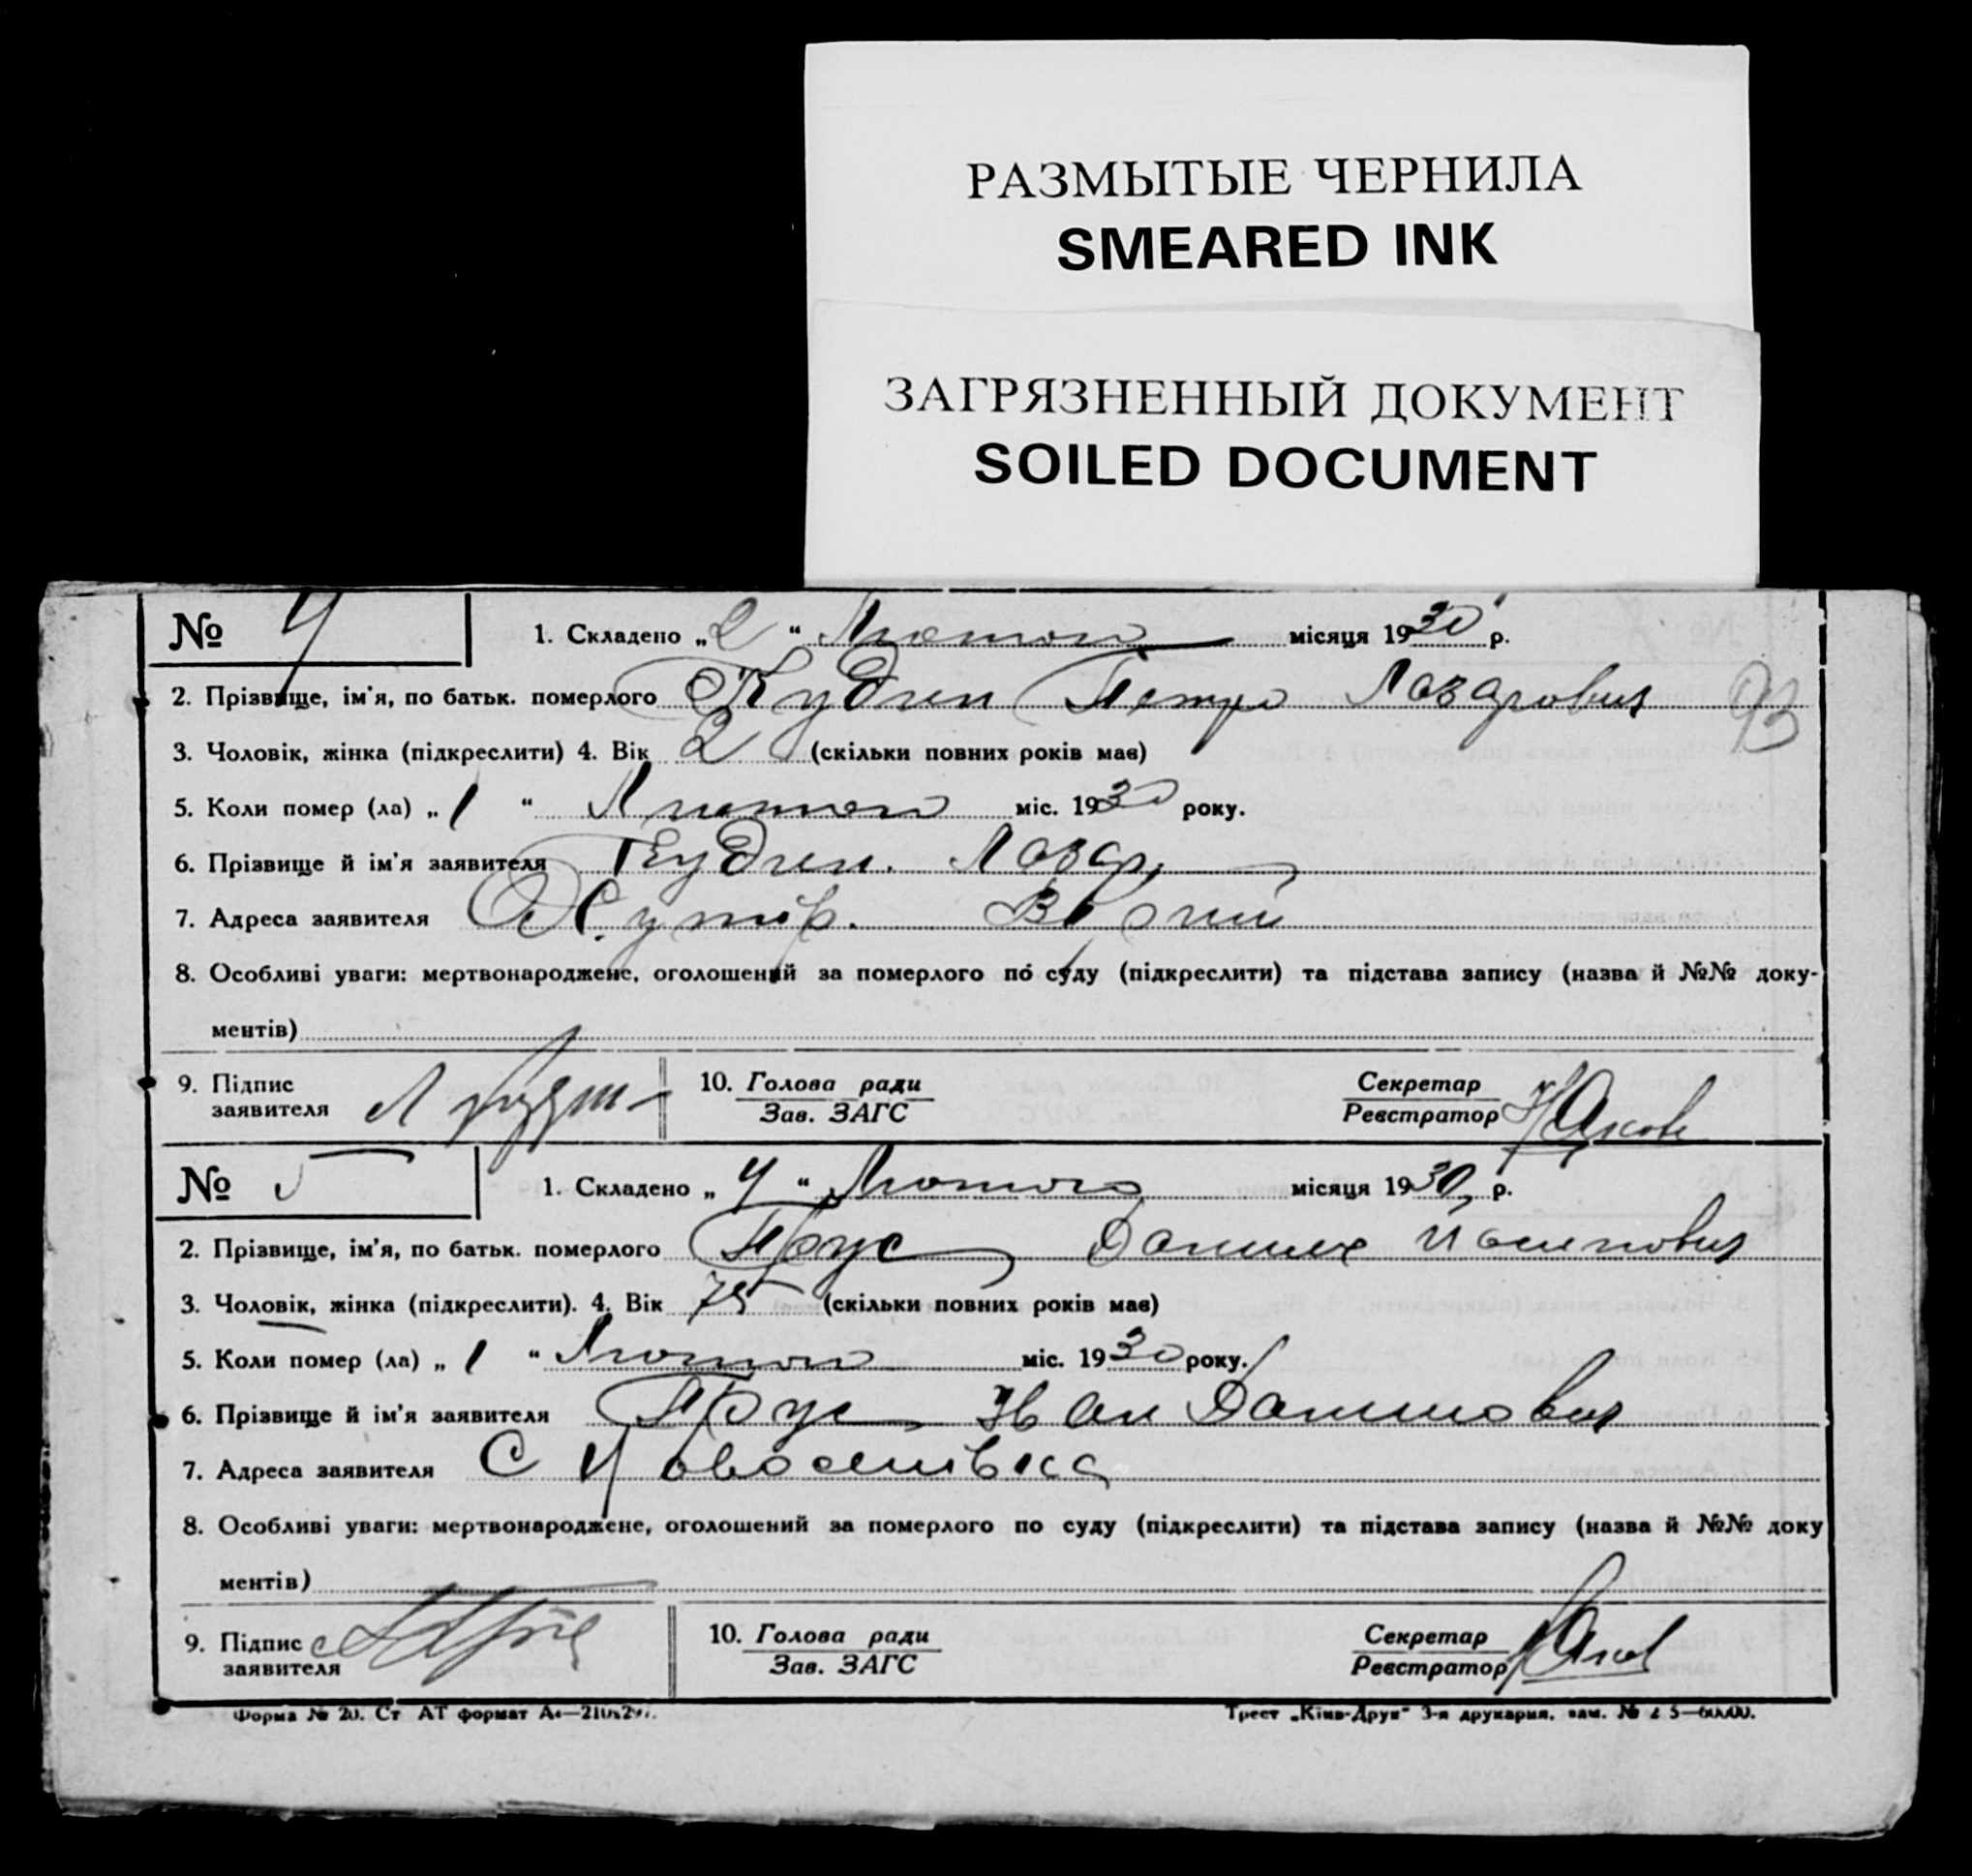 РАЗМЫТЫЕ ЧЕРНИЛА
SMEARED INK
ЗАГРЯЗНЕННЫЙ ДОКУМЕНТ
SOILED DOCUMENT
№ 4 1. Складено „2“ Лютого місяця 1930 р.
2. Прізвище, ім'я, по батьк. померлого Кудин Петро Лазарович 93
3. Чоловік, жінка (підкреслити) 4. Вік 2 (скільки повних років має)
5. Коли помер (ла) „1“ Лютого міс. 1930 року.
6. Прізвище й ім'я заявителя Кудин. Лазар.
7. Адреса заявителя Хутір.
8. Особливі уваги: мертвонароджене, оголошений за померлого по суду (підкреслити) та підстава запису (назва й №№ доку-
ментів)
9. Підпис заявителя 10. Голова ради Зав. ЗАГС Секретар Реєстратор
№ 5 1. Складено „4“ Лютого місяця 1930 р.
2. Прізвище, ім'я, по батьк. померлого Прус Данило Йосипович
3. Чоловік, жінка (підкреслити). 4. Вік 75 (скільки повних років має)
5. Коли помер (ла) „1“ Лютого міс. 1930 року.
6. Прізвище й ім'я заявителя Прус Іван Данилович
7. Адреса заявителя С Новоселівка
8. Особливі уваги: мертвонароджене, оголошений за померлого по суду (підкреслити) та підстава запису (назва й №№ доку
ментів)
9. Підпис заявителя 10. Голова ради Зав. ЗАГС Секретар Реєстратор
Форма № 20. Ст АТ формат А4—210х297. Трест „Київ-Друк“ 3-я друкарня, зам. №